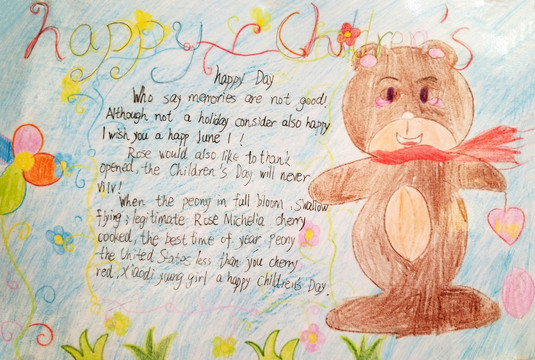 happy Children's
happy Day
Who say memories are not good!
Although not a holiday consider also happy
I wish you a happ June 1!
Rose would also like to thank
opened, the Children's Day will never
When the peony in full bloom, swallow
flying, legitimate Rose Michelia cherry
cooked, the best time of year, Peony
the United States less than you cherry
red, Xiaodi young girl a happy children's Day.